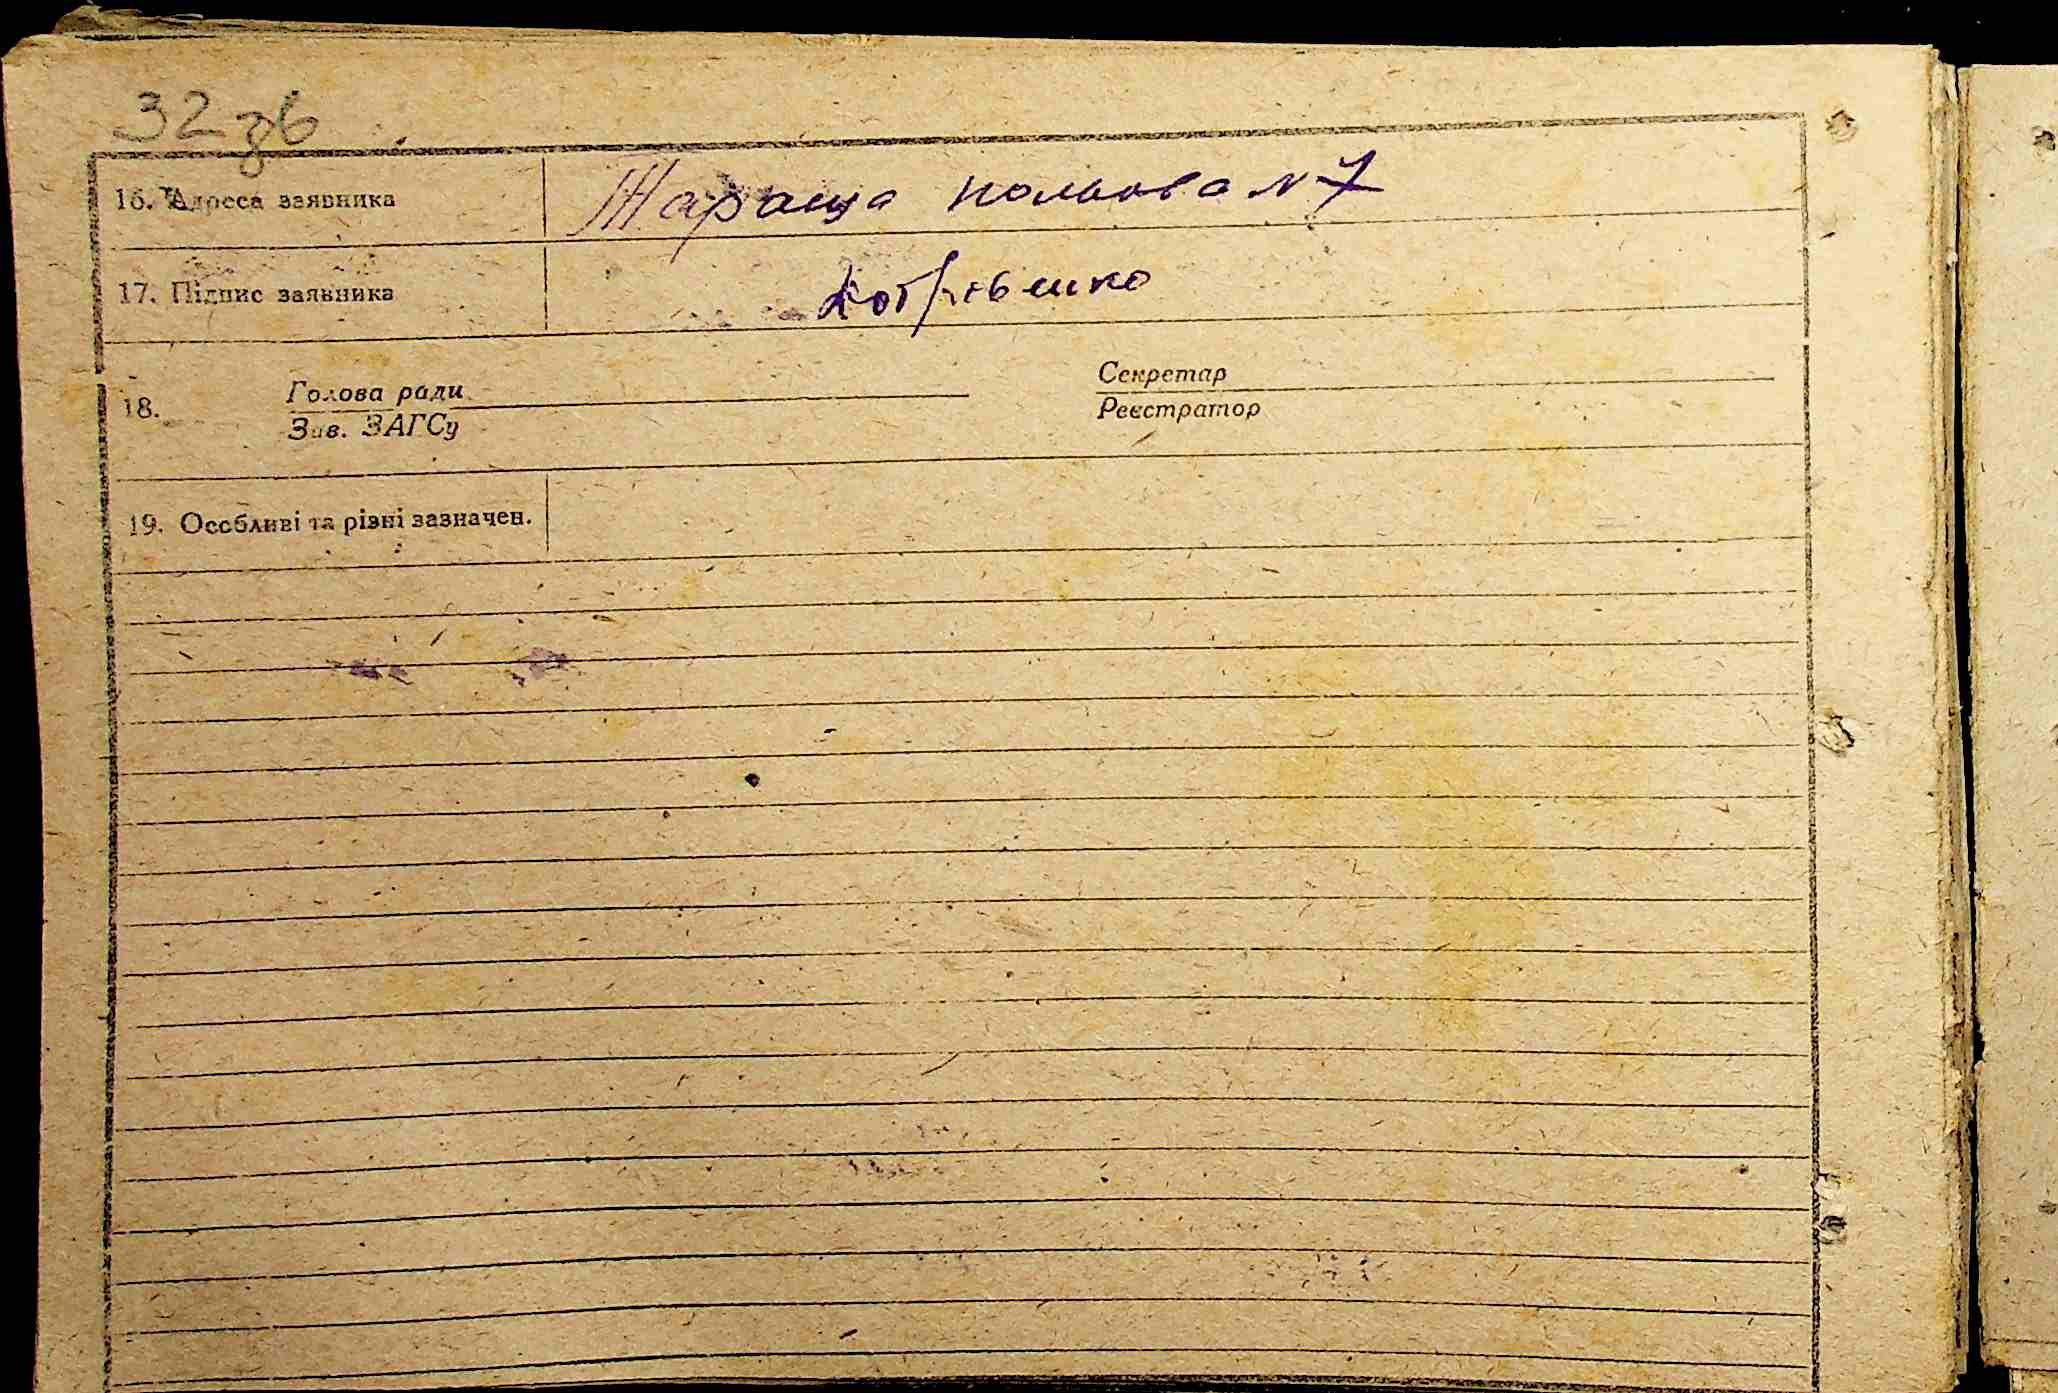 32 зв
16. Адреса заявника Тараща польова N 7
17. Підпис заявника
18. Голова ради Секретар
Зав. ЗАГСу Реєстратор
19. Особливі та різні зазначен.